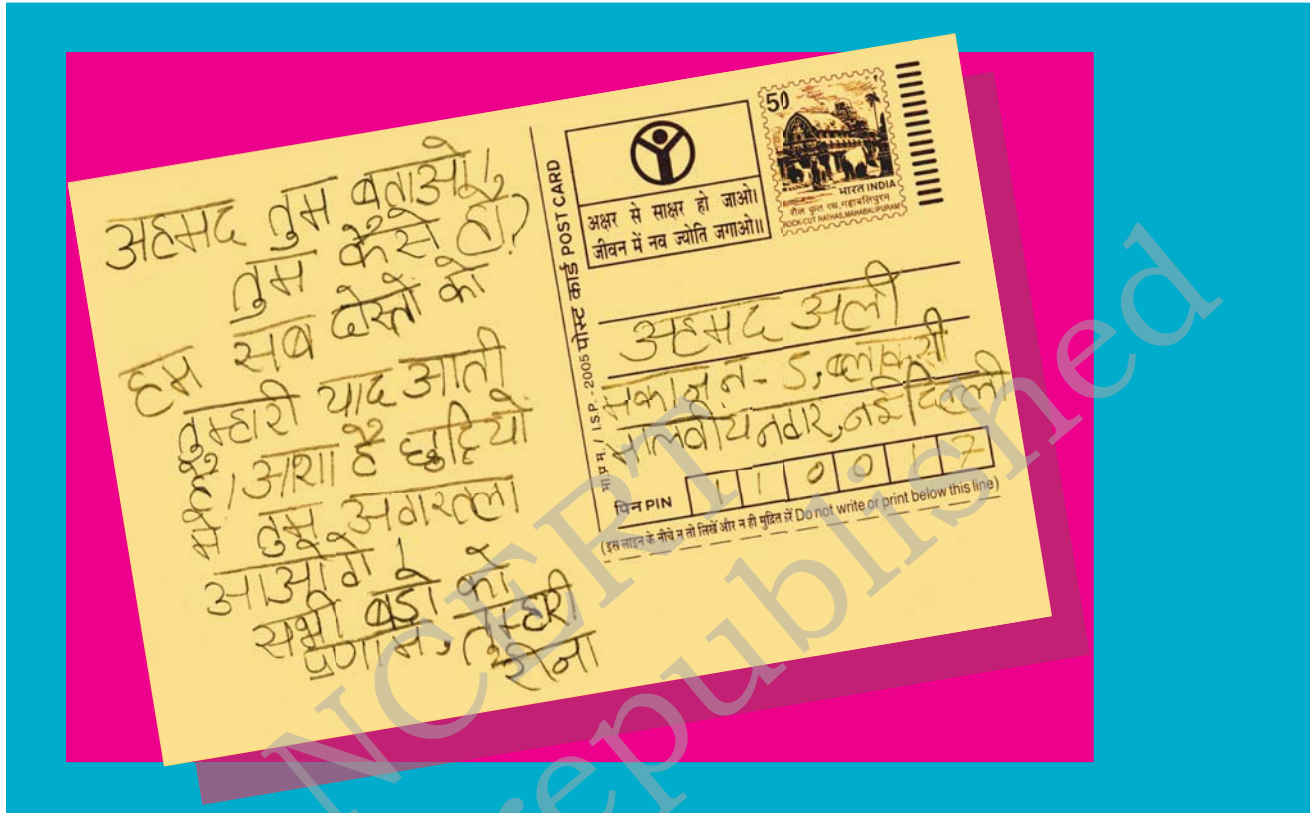 अहमद तुम बताओ,
तुम कैसे हो?
हम सब दोस्तों को
तुम्हारी याद आती
है। आशा है छुट्टियों
में तुम अगरतला
आओगे।
सभी बड़ो को
प्रणाम, तुम्हारी
रीना
पोस्ट कार्ड POST CARD
I.S.P. - 2005
अक्षर से साक्षर हो जाओ।
जीवन में नव ज्योति जगाओ॥
50
भारत INDIA
शैल कृत रथ, महाबलिपुरम
ROCK-CUT RATHAS, MAHABALIPURAM
अहमद अली
मकान न- 5, ब्लाक सी
मालवीय नगर, नई दिल्ली
पिन PIN 110017
(इस लाइन के नीचे न तो लिखें और न ही मुद्रित करें Do not write or print below this line)
NCERT
republished